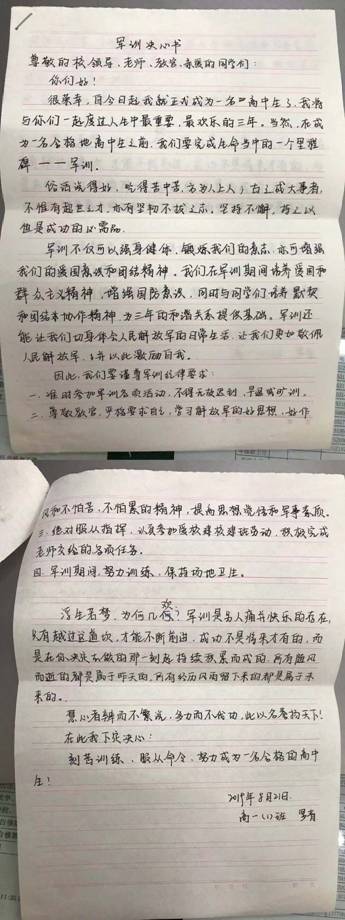 军训决心书
尊敬的校领导、老师、教官、亲爱的同学们：
你们好！
很荣幸，自今日起我就正式成为一名高中生了，我将
与你们一起度过人生中最重要、最欢乐的三年。当然，在成
为一名合格地高中生之前，我们要完成生命当中的一个里程
碑——军训。
俗话说得好，吃得苦中苦，方为人上人；古之成大事者，
不惟有超世之才，亦有坚韧不拔之志。坚持不懈，持之以
也是成功的必需品。
军训不仅可以强身健体，锻炼我们的意志，亦可增强
我们的爱国意识和团结精神。我们在军训期间培养爱国和
群众主义精神，增强国防意识，同时与同学们培养默契
和团结协作精神，为三年的和谐关系提供基础。军训还
能让我们切身体会人民解放军的日常生活，让我们更加敬佩
人民解放军，并以此激励自我。
因此，我们要谨尊军训纪律要求：
一、准时参加军训各项活动，不得无故迟到、早退或旷训。
二、尊敬教官，严格要求自己，学习解放军的好思想、好作
风和不怕苦、不怕累的精神，提高思想觉悟和军事素质。
三、绝对服从指挥，认真参加医校建校建班劳动，积极完成
老师交给的各项任务。
四、军训期间，努力训练，保持场地卫生。
浮生若梦，为欢几何？军训是与人痛并快乐的存在，
只有越过这道坎，才能不断前进，成功不是将来才有的，而
是在你决定去做的那一刻起，持续积累而成的，所有随风
而逝的都是属于昨天的，所有经历风雨留下来的都是属于未
来的。
在此我下定决心：
刻苦训练，服从命令，努力成为一名合格的高中
生！
2019年8月21日.
高一(1)班